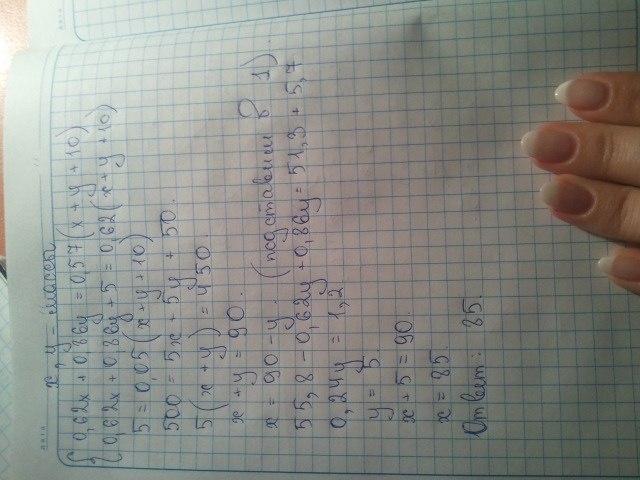 x, y – массы
0,62x + 0,86y = 0,57(x + y + 10)
0,62x + 0,86y + 5 = 0,62(x + y + 10)
5 = 0,05(x + y + 10)
500 = 5x + 5y + 50.
5(x + y) = 450.
x + y = 90.
x = 90 – y. (подставим в 1).
55,8 – 0,62y + 0,86y = 51,3 + 5,7
0,24y = 1,2
y = 5
x + 5 = 90.
x = 85.
Ответ: 85.